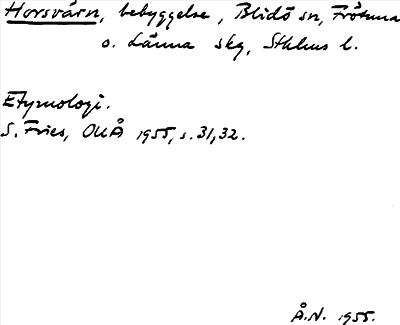 Horsvärn, bebyggelse, Blidö sn, Frötuna
o. Länna skg, Sthlms l.
Etymologi.
S. Fries, OUÅ 1955, s. 31, 32.
Å.N. 1955.